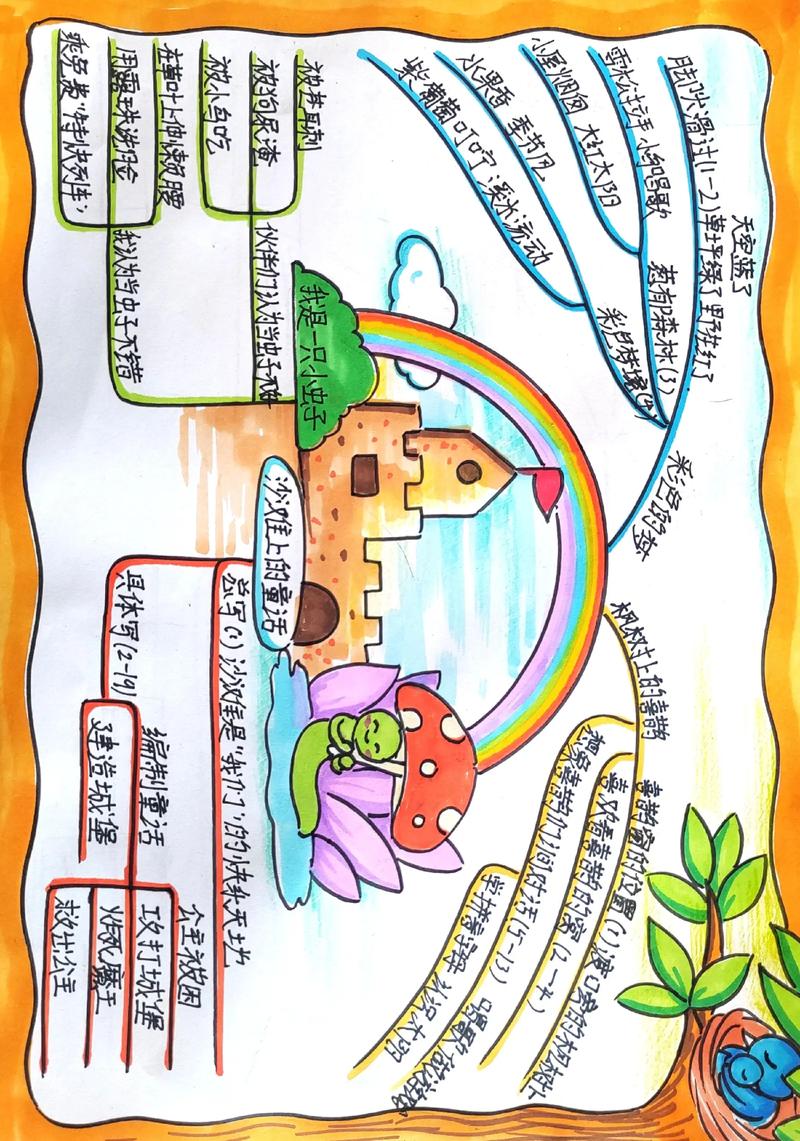 天空蓝了
脚尖滑过(1-2) 草坪绿了 野花红了
彩色的梦
葱郁森林(3)
雪松拉手 小鸟唱歌
小屋烟囱 大红太阳
彩色梦境(4)
水果香 季节风
紫葡萄 叮咛 溪水流动
枫树上的喜鹊
喜鹊窝的位置(1) 渡口旁的枫树上
喜欢看喜鹊的窝(2-4)
想象喜鹊们的对话(5-13) 唱歌 做游戏
学拼音字母 认识太阳
我是一只小虫子
伙伴们认为当虫子不好
被苍耳刺
被狗尿淹
被小鸟吃
我认为当虫子不错
在草叶上伸懒腰
用露珠洗脸
乘免费“特快列车”
沙滩上的童话
总写(1) 沙滩是“我们”的快乐天地
具体写(2-19)
编制童话
建造城堡
公主被困
攻打城堡
炸死魔王
救出公主